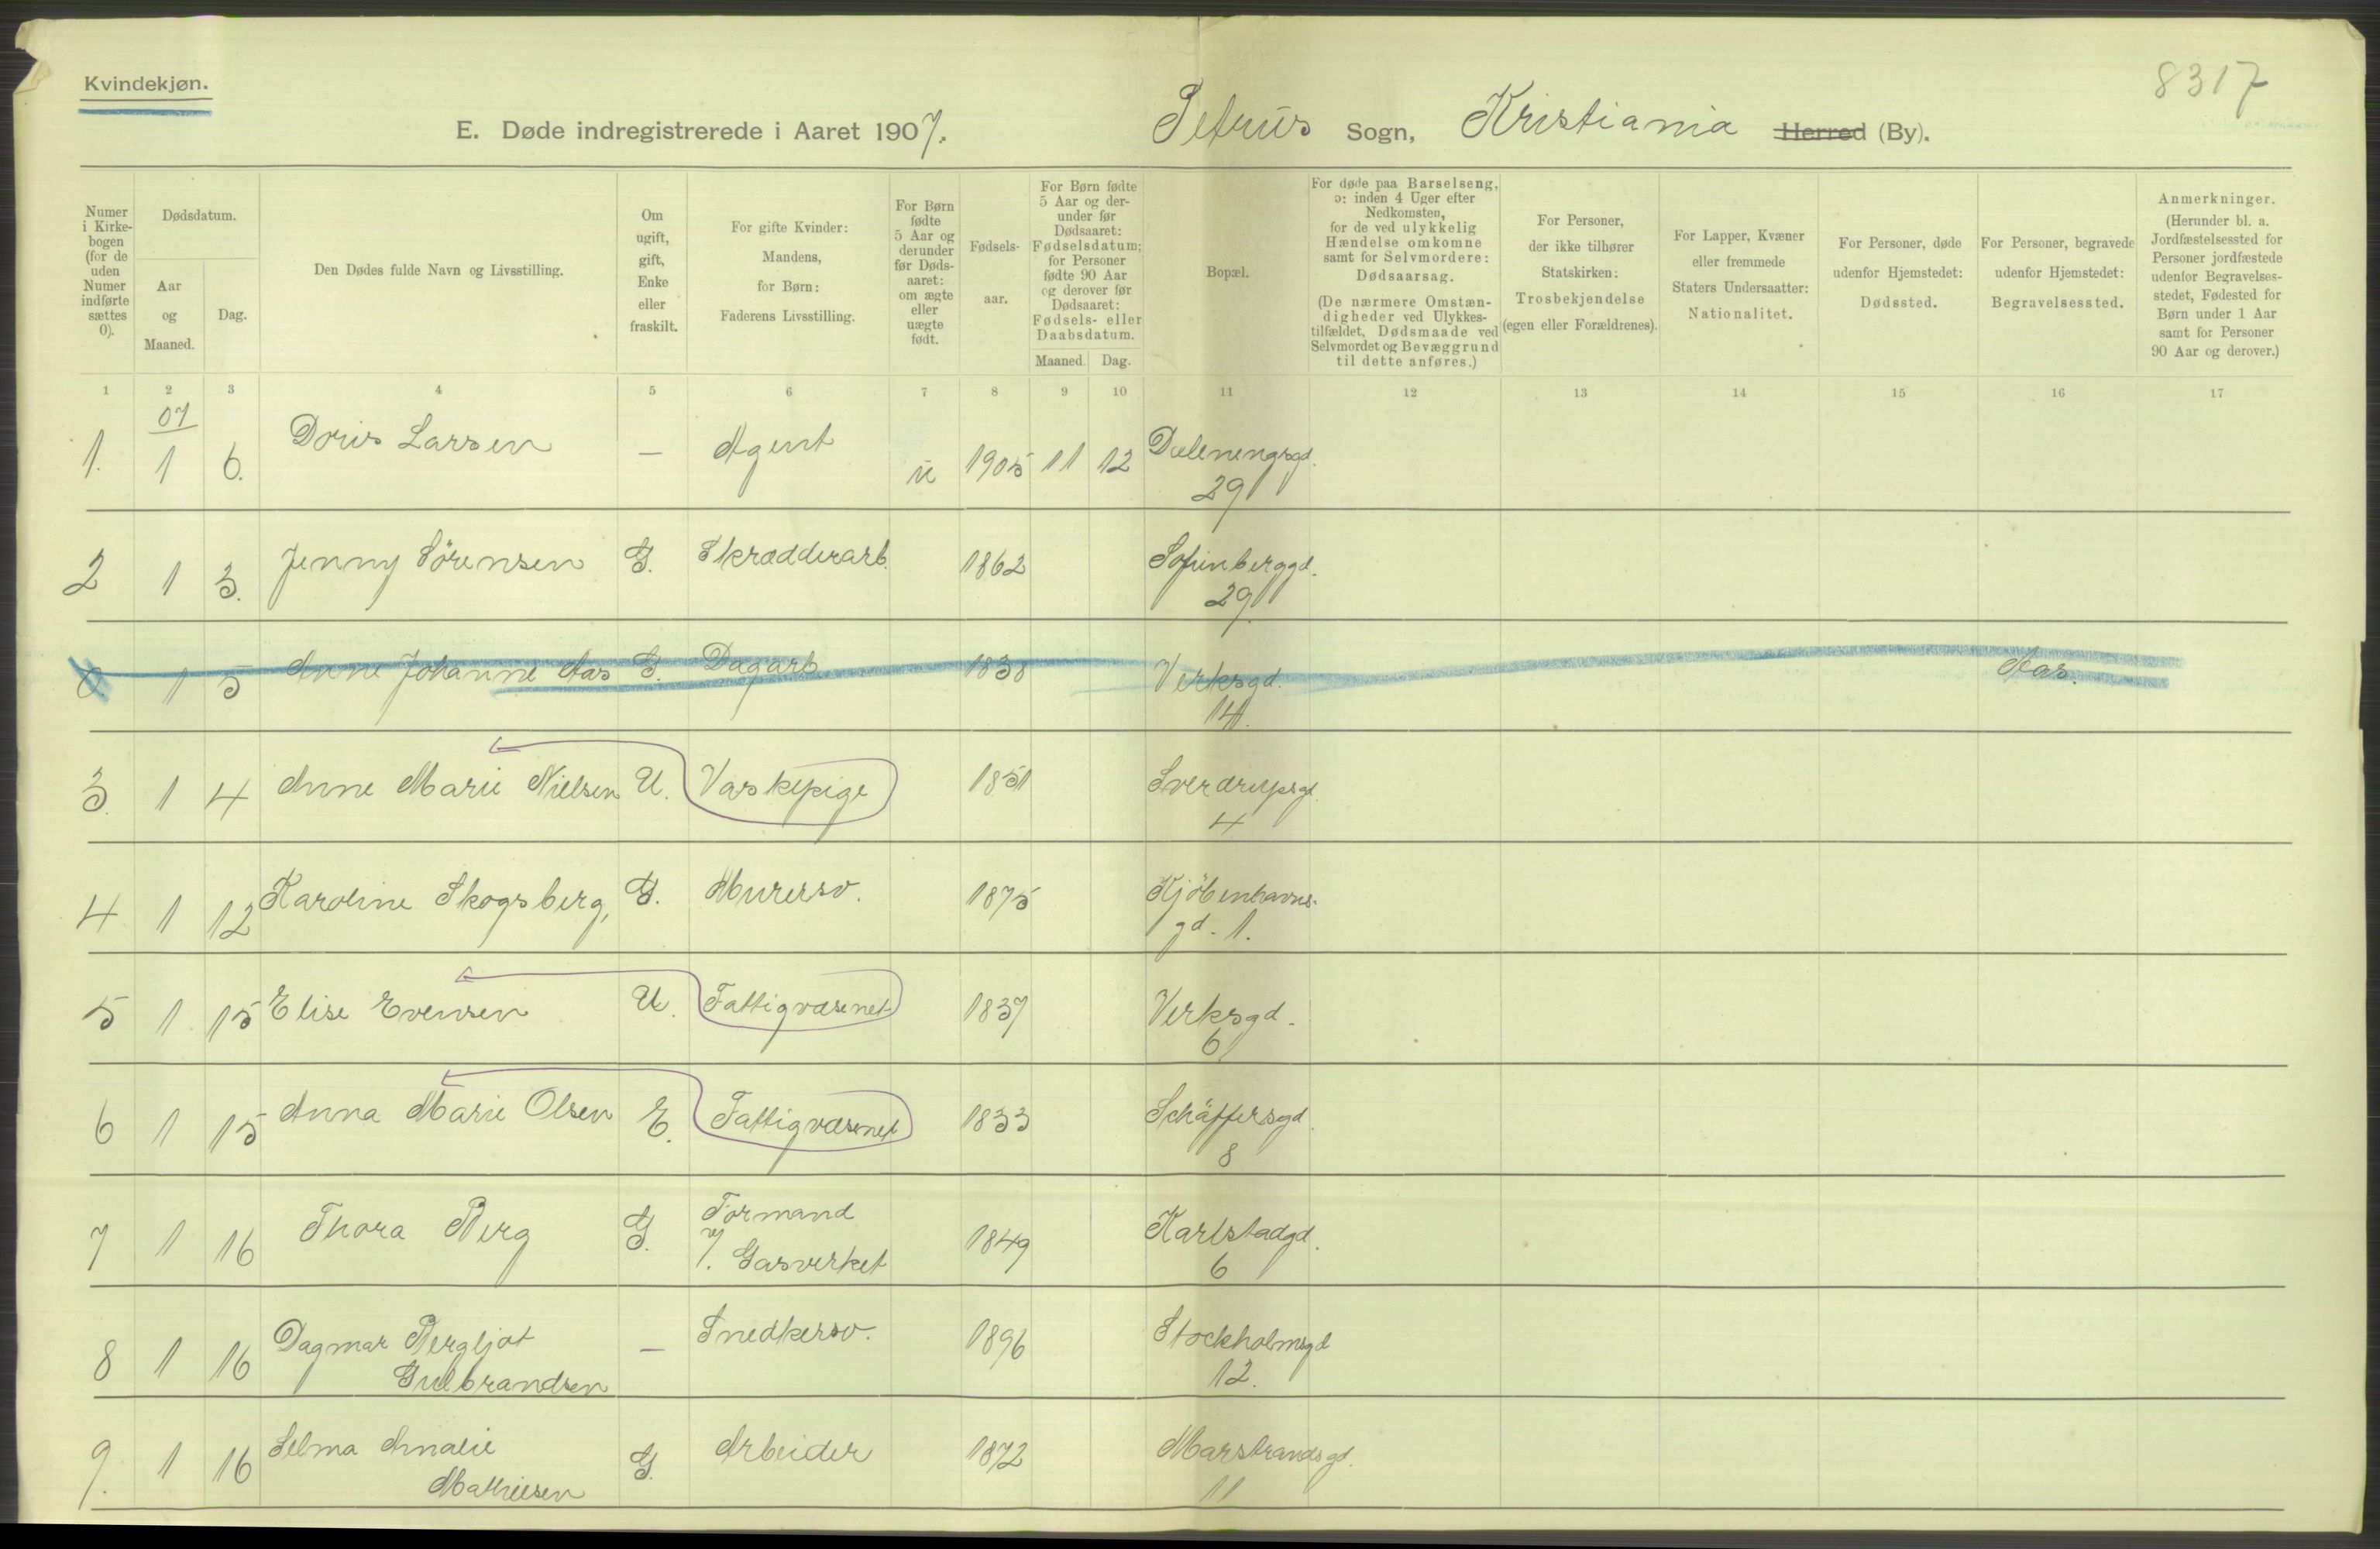 Kvindekjøn.
8317
E. Døde indregistrerede i Aaret 1907. Petrus Sogn, Kristiania Herred (By).
Numer i Kirkebogen (for de uden Numer indførte sættes 0).
Dødsdatum.
Aar og Maaned.
Dag.
Den Dødes fulde Navn og Livsstilling.
Om ugift, gift, Enke eller fraskilt.
For gifte Kvinder: Mandens, for Børn: Faderens Livsstilling.
For Børn fødte 5 Aar og derunder før Dødsaaret: om ægte eller uægte født.
Fødselsaar.
For Børn fødte 5 Aar og derunder før Dødsaaret: Fødselsdatum; for Personer fødte 90 Aar og derover før Dødsaaret: Fødsels- eller Daabsdatum.
Maaned. Dag.
Bopæl.
For døde paa Barselseng, ɔ: inden 4 Uger efter Nedkomsten, for de ved ulykkelig Hændelse omkomne samt for Selvmordere: Dødsaarsag.
(De nærmere Omstændigheder ved Ulykkestilfældet, Dødsmaade ved Selvmordet og Bevæggrund til dette anføres.)
For Personer, der ikke tilhører Statskirken: Trosbekjendelse (egen eller Forældrenes).
For Lapper, Kvæner eller fremmede Staters Undersaatter: Nationalitet.
For Personer, døde udenfor Hjemstedet: Dødssted.
For Personer, begravede udenfor Hjemstedet: Begravelsessted.
Anmerkninger.
(Herunder bl. a. Jordfæstelsessted for Personer jordfæstede udenfor Begravelsesstedet, Fødested for Børn under 1 Aar samt for Personer 90 Aar og derover.)
1 2 3 4 5 6 7 8 9 10 11 12 13 14 15 16 17
07
1. 1 6. Doris Larsen — Agent u 1905 11 12 Dælenengsgd. 29
2 1 3. Jenny Sörensen G. Skrædderarb. 1862 Sofienberggd. 29
0 1 5 Anne Johanne Aas G. Dagarb. 1838 Verksgd. 14. Aas.
3. 1 4 Anne Marie Nielsen U. Vaskepige 1851 Sverdrupsgd. 4
4 1 12 Karoline Skogsberg, G. Murersv. 1875 Kjöbenhavns-
gd. 1.
5 1 15 Elise Evensen U. Fattigvæsenet 1837 Verksgd. 6
6 1 15 Anna Marie Olsen E. Fattigvæsenet 1833 Schäffersgd. 8
7 1 16 Thora Berg G. Formand
v/. Gasverket 1849 Karlstadgd. 6
8 1 16 Dagmar Bergljot
Gulbrandsen — Snedkersv. 1896 Stockholmsgd 12.
9. 1 16 Selma Amalie
Mathiesen G. Arbeider 1872 Marstrandsgd. 11